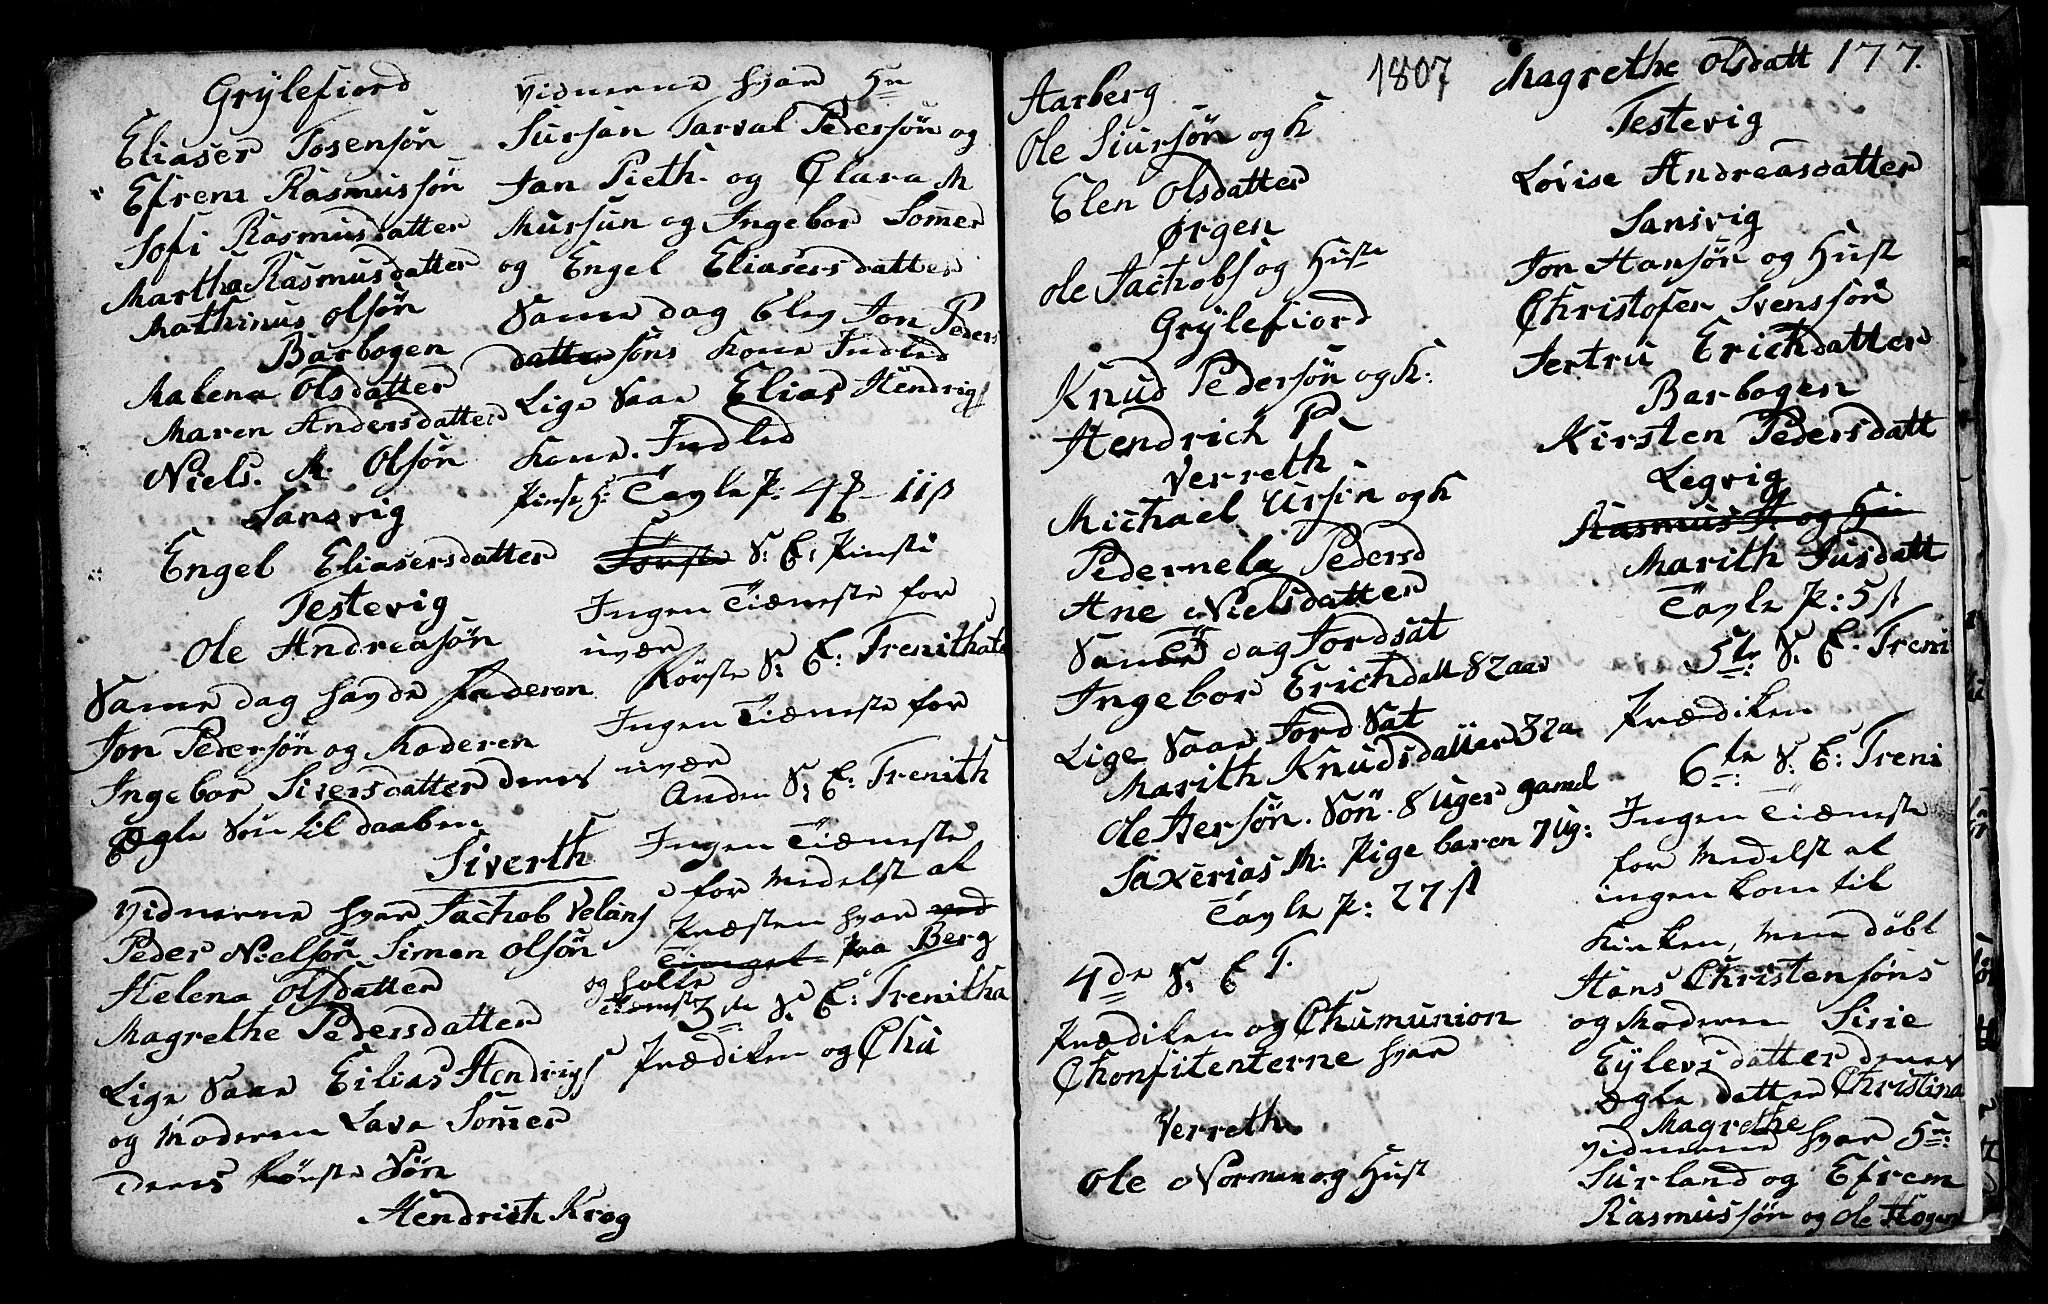 Grÿlefiord
Eliaser Tosensøn
Efrem Rasmussøn
Sofi Rasmusdatter
Martha Rasmusdatter
Mathinus olsøn
Barbogen
Malena Olsdatter
Maren Andersdatter
Niels. M. Olsøn
Sansvig
Engel Eliasersdatter
Testevig
Ole Andreasøn
Same dag havde faderen
Jon Pedersøn og Moderen
Ingebor Siversdatter deres
Ægte Søn til daaben
Siverth
vidnerne hvar Jachob Velans
Peder Nielsøn Simen olsøn
Helena Olsdatter
Magrethe Pedersdatter
Lige Saa Eilias Hendrigs
og Moderen Lava Somer
deres første Søn
Hendrich Krog
vidnerne hvar Hr
Sursan Tarval Pedersøn og
Jan Pieth. og Clara M
Mursun og Ingebor Somer
og Engel Eliasersdatter
Same dag blev Jon Peders
datter søns kone Indled
Lige Saa Elias Hendrigs
kone. Indled
Tavle P: 4 11 ß
S: E: Pinsti
Ingen Tiæneste for
uvær
Første S: E: Trenithate
Ingen Tiæneste for
uvær
Anden S: E: Trenith
Ingen Tiæneste
for Medelst at
Præsten hvar ved
Tinget paa Berg
og holte
3de S: E: Trenitha
Prædiken og Chu
1807
177.
Aarberg
Ole Siursøn og h
Elen Olsdatter
Ørgen
Ole Jachobs og Huste
Grÿlefiord
Knud Pedersøn og h:
Hendrich P
Verreth
Michael Ursin og h
Pedernela Pedersd
Ane Nielsdatter
Same dag Jordsat
Ingebor Erichdatt 82 aar
Lige Saa Jord Sat
Marith Knudsdatter 32 a
Ole Hersøn. Søn. 8 uger gamel
Saxerias M: Pige baren 7 ug:
Tavle P: 27 ß
4de S: E T.
Prædiken og Chumunion
Chonfitenterne hvar
Verreth
Ole Norman og Hust
Magrethe Olsdatt
Testevig
Lovise Andreasdatter
Sansvig
Jon Hansøn og Hust
Christofer Svenssøn
Jertru Erichdatter
Barbogen
Kirsten Pedersdatt
Legvig
Rasmus H. og Hu
Marith Jusdatt
Tavle P: 5 ß
5te S. E. Treni
Prædiken
6te S: E: Treni
Ingen Tiæneste
for Medelst at
ingen kom til
kirken, Men døbt
Hans Christensøns
og Moderen Sirie
Eÿlersdatter deres
Ægte datter Christina
Magrethe
vidnerne hvar Hr:
Surland og Efrem
Rasmussøn og Ole Hogen